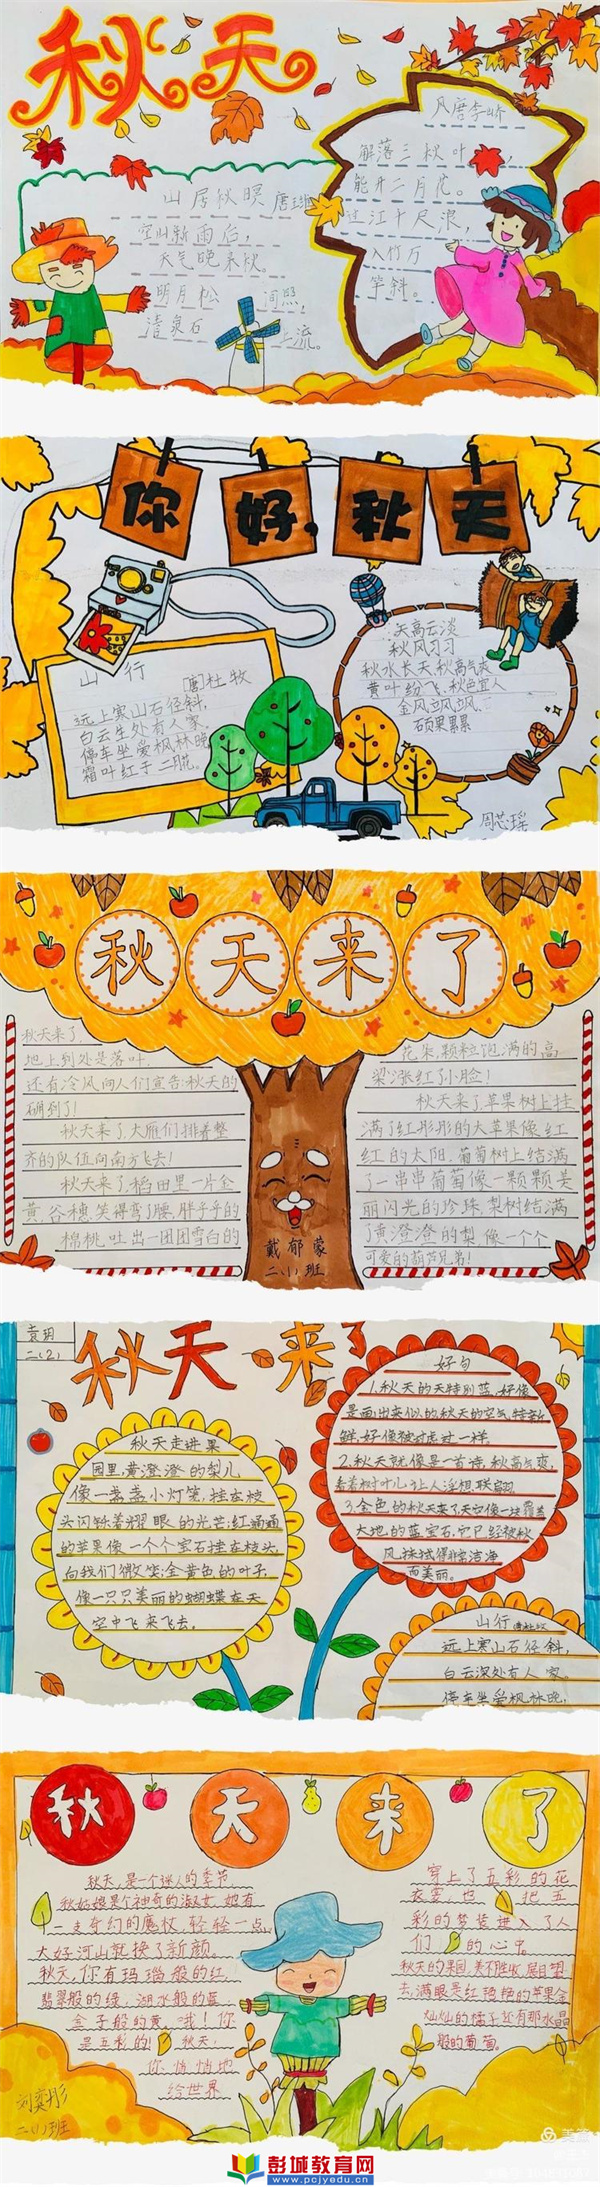 秋天
风 唐 李峤
解落三秋叶,
能开二月花。
过江千尺浪,
入竹万
竿斜。
山居秋暝 唐 王维
空山新雨后,
天气晚来秋。
明月松 间照,
清泉石 上流。
你好,秋天
山 行
[唐]杜牧
远上寒山石径斜,
白云生处有人家。
停车坐爱枫林晚,
霜叶红于二月花。
天高云淡
秋风习习
秋水长天,秋高气爽
黄叶纷飞,秋色宜人
金风飒飒,
硕果累累
周芯瑶
秋天来了
秋天来了,
地上到处是落叶,
还有冷风向人们宣告:秋天的
确到了!
秋天来了,大雁们排着整
齐的队伍向南方飞去!
秋天来了,稻田里一片金
黄,谷穗笑得弯了腰,胖乎乎的
棉桃,吐出一团团雪白的
花朵,颗粒饱满的高
粱涨红了小脸!
秋天来了,苹果树上挂
满了红彤彤的大苹果像红
红的太阳,葡萄树上结满
了一串串葡萄像一颗颗美
丽闪光的珍珠,梨树结满
了黄澄澄的梨像一个个
可爱的葫芦兄弟!
戴郁蒙
二、(1)班
袁玥
二(2)
秋天来了
秋天走进果
园里,黄澄澄的梨儿
像一盏盏小灯笼,挂在枝
头闪烁着耀眼的光芒;红通通
的苹果像一个个宝石挂在枝头,
向我们微笑;金黄色的叶子
像一只只美丽的蝴蝶在天
空中飞来飞去。
好句
1.秋天的天特别蓝,好像
是画出来似的,秋天的空气特新
鲜,好像被过虑过一样。
2.秋天就像是一首诗,秋高气爽,
看着树叶儿,让人浮想联翩。
3.金色的秋天来了,天空像一块覆盖
大地的蓝宝石,它已经被秋
风抹拭得非常洁净
而美丽。
山行 唐杜牧
远上寒山石径斜,
白云深处有人家。
停车坐爱枫林晚,
秋天来了
秋天,是一个迷人的季节
秋姑娘是个神奇的淑女,她有
一支奇幻的魔杖,轻轻一点,
大好河山就换了新颜。
秋天,你有玛瑙般的红
翡翠般的绿,湖水般的蓝
金子般的黄,哦!你
是五彩的! 秋天,
你悄悄地
给世界
穿上了五彩的花
衣裳,也 把五
彩的梦装进入了人
们 的心中。
秋天的果园,美不胜收,展目望
去,满眼是红艳艳的苹果金
灿灿的橘子还有那水晶
般的葡萄。
刘奕彤
二(1)班
彭城教育网
www.pcjyedu.cn